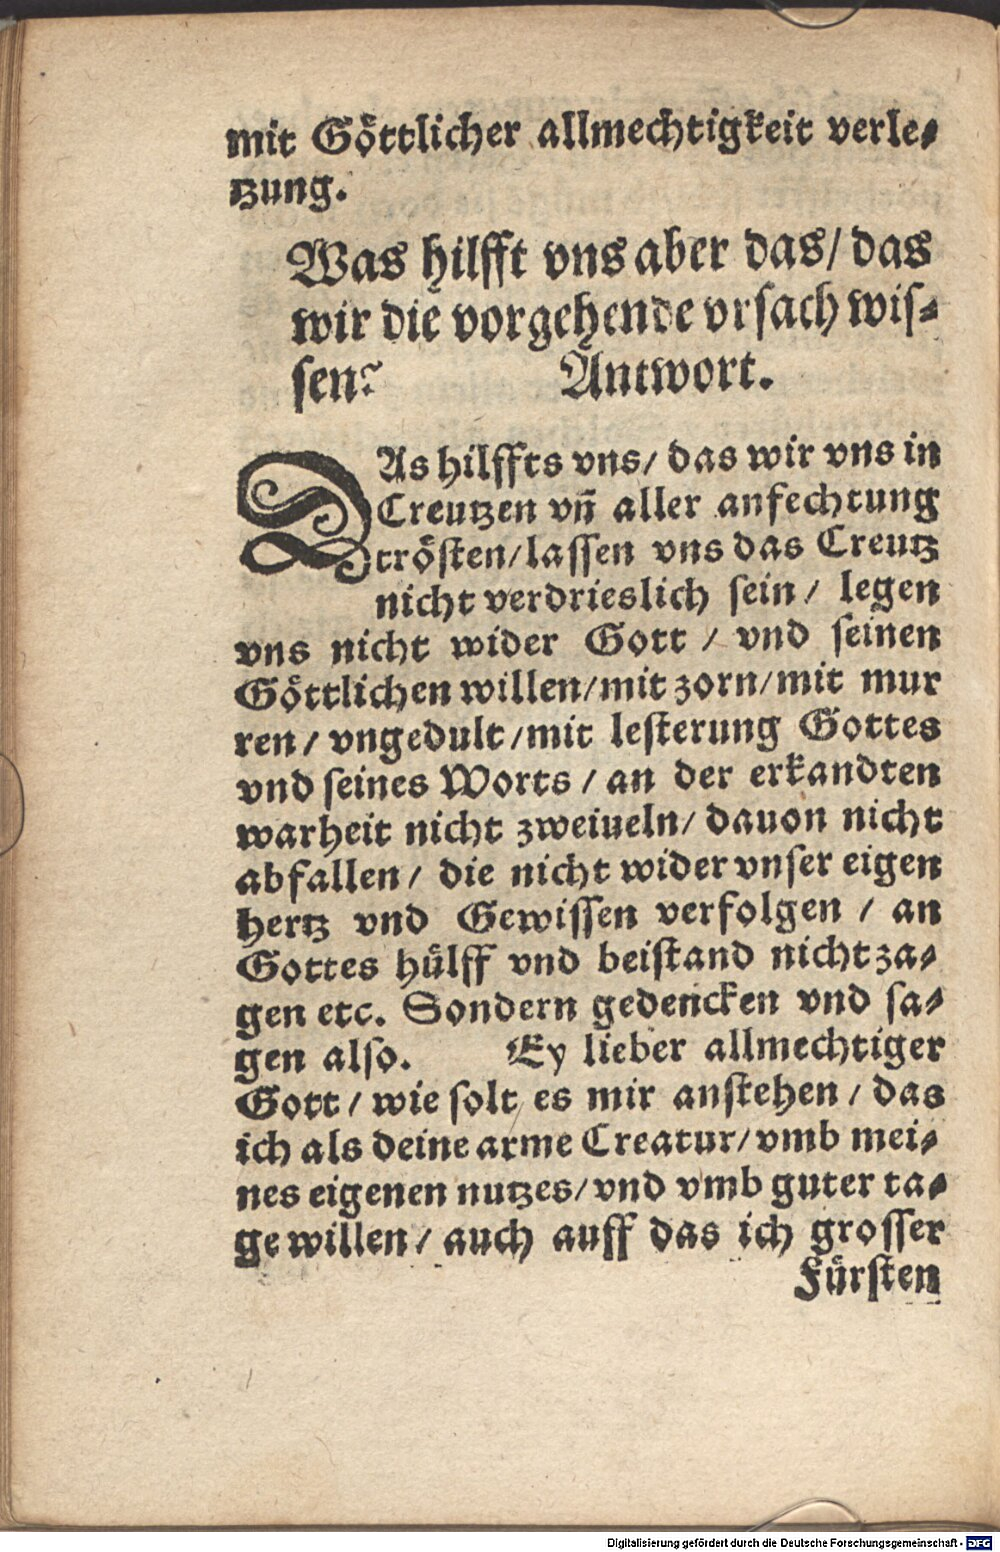 mit Göttlicher allmechtigkeit verle⸗
tzung.
Was hilfft vns aber das/ das
wir die vorgehende vrsach wis⸗
sen? Antwort.
DAs hilffts vns/ das wir vns in
Creutzen vñ aller anfechtung
trösten/ lassen vns das Creutz
nicht verdrieslich sein/ legen
vns nicht wider Gott / vnd seinen
Göttlichen willen/ mit zorn/ mit mur
ren/ vngedult/ mit lesterung Gottes
vnd seines Worts/ an der erkandten
warheit nicht zweiueln/ dauon nicht
abfallen/ die nicht wider vnser eigen
hertz vnd Gewissen verfolgen / an
Gottes hülff vnd beistand nicht za⸗
gen etc. Sondern gedencken vnd sa⸗
gen also. Ey lieber allmechtiger
Gott/ wie solt es mir anstehen/ das
ich als deine arme Creatur/ vmb mei⸗
nes eigenen nutzes/ vnd vmb guter ta⸗
ge willen/ auch auff das ich grosser
Fürsten
Digitalisierung gefördert durch die Deutsche Forschungsgemeinschaft - DFG